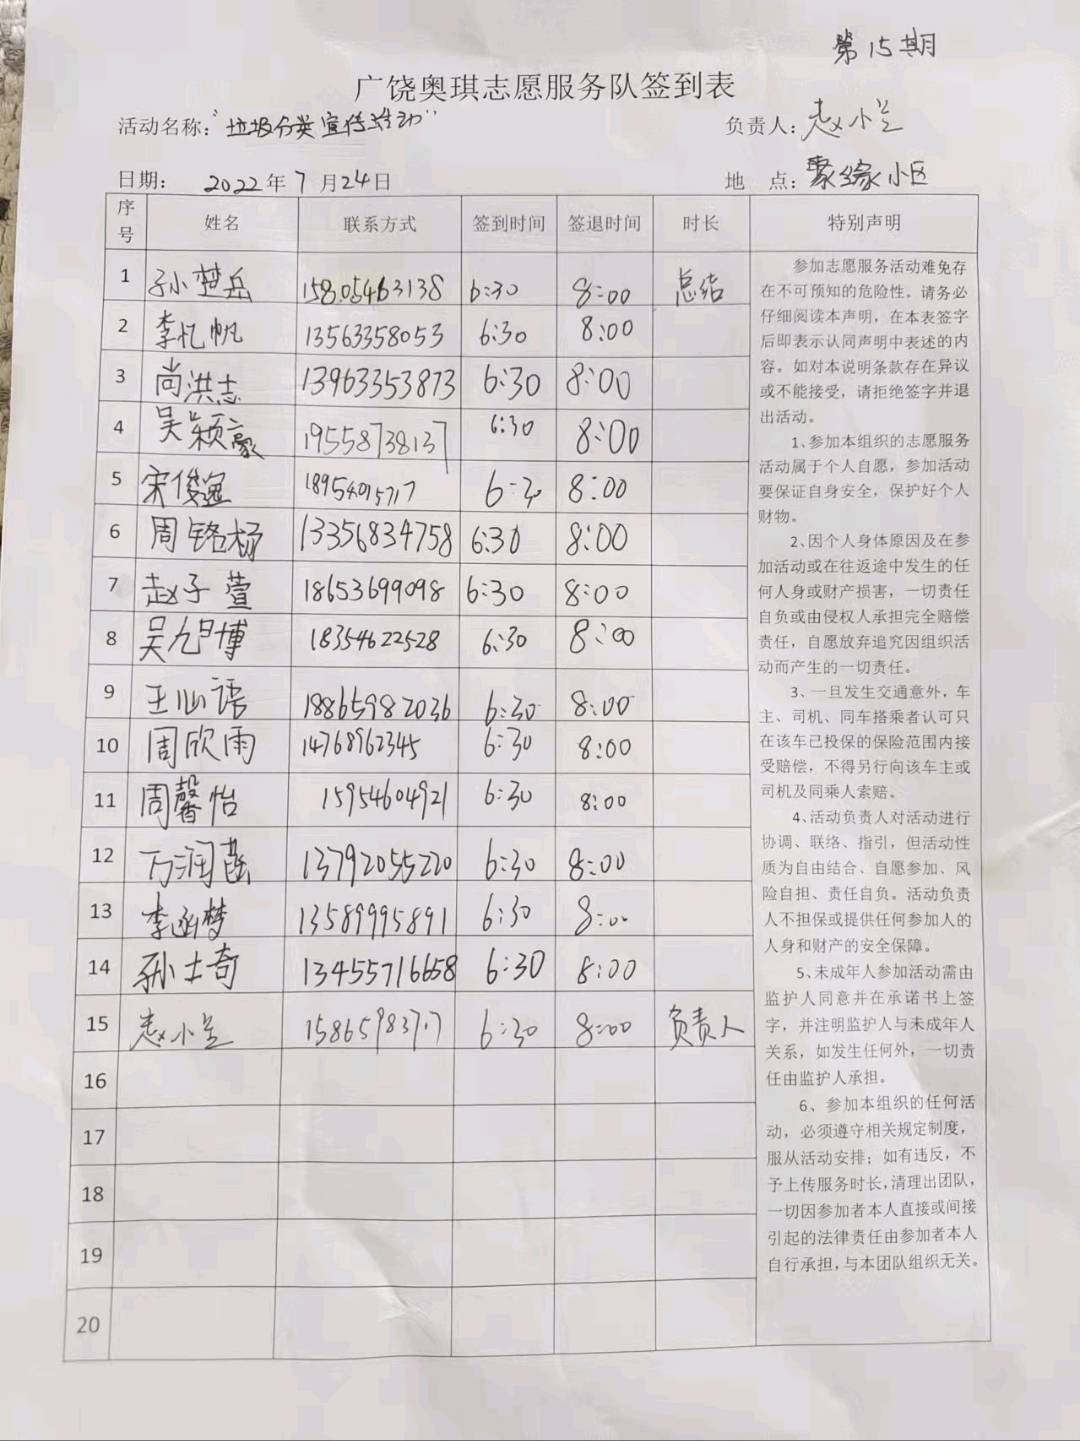 第15期
广饶奥琪志愿服务队签到表
活动名称："垃圾分类宣传活动"
负责人：赵小兰
日期： 2022年7月24日
地 点：聚缘小区
序号 姓名 联系方式 签到时间 签退时间 时长 特别声明
1 孙楚岳 15805463138 6:30 8:00 总结
2 李忆帆 13563358053 6:30 8:00
3 尚洪志 13963353873 6:30 8:00
4 吴颖豪 19558738137 6:30 8:00
5 宋俊逸 18954015717 6:30 8:00
6 周铭杨 13356834758 6:30 8:00
7 赵子萱 18653699098 6:30 8:00
8 吴旭博 18354622528 6:30 8:00
9 王心语 18865982036 6:30 8:00
10 周欣雨 14768962345 6:30 8:00
11 周馨怡 15954604921 6:30 8:00
12 万润菡 13792055220 6:30 8:00
13 李函梦 13589995891 6:30 8:00
14 孙士奇 13455716658 6:30 8:00
15 赵小兰 6:30 8:00 负责人
16
17
18
19
20
参加志愿服务活动难免存
在不可预知的危险性。请务必
仔细阅读本声明，在本表签字
后即表示认同声明中表述的内
容。如对本说明条款存在异议
或不能接受，请拒绝签字并退
出活动。
1、参加本组织的志愿服务
活动属于个人自愿，参加活动
要保证自身安全，保护好个人
财物。
2、因个人身体原因及在参
加活动或在往返途中发生的任
何人身或财产损害，一切责任
自负或由侵权人承担完全赔偿
责任，自愿放弃追究因组织活
动而产生的一切责任。
3、一旦发生交通意外，车
主、司机、同车搭乘者认可只
在该车已投保的保险范围内接
受赔偿，不得另行向该车主或
司机及同乘人索赔。
4、活动负责人对活动进行
协调、联络、指引，但活动性
质为自由结合、自愿参加、风
险自担、责任自负。活动负责
人不担保或提供任何参加人的
人身和财产的安全保障。
5、未成年人参加活动需由
监护人同意并在承诺书上签
字，并注明监护人与未成年人
关系，如发生任何外，一切责
任由监护人承担。
6、参加本组织的任何活
动，必须遵守相关规定制度，
服从活动安排；如有违反，不
予上传服务时长，清理出团队，
一切因参加者本人直接或间接
引起的法律责任由参加者本人
自行承担，与本团队组织无关。